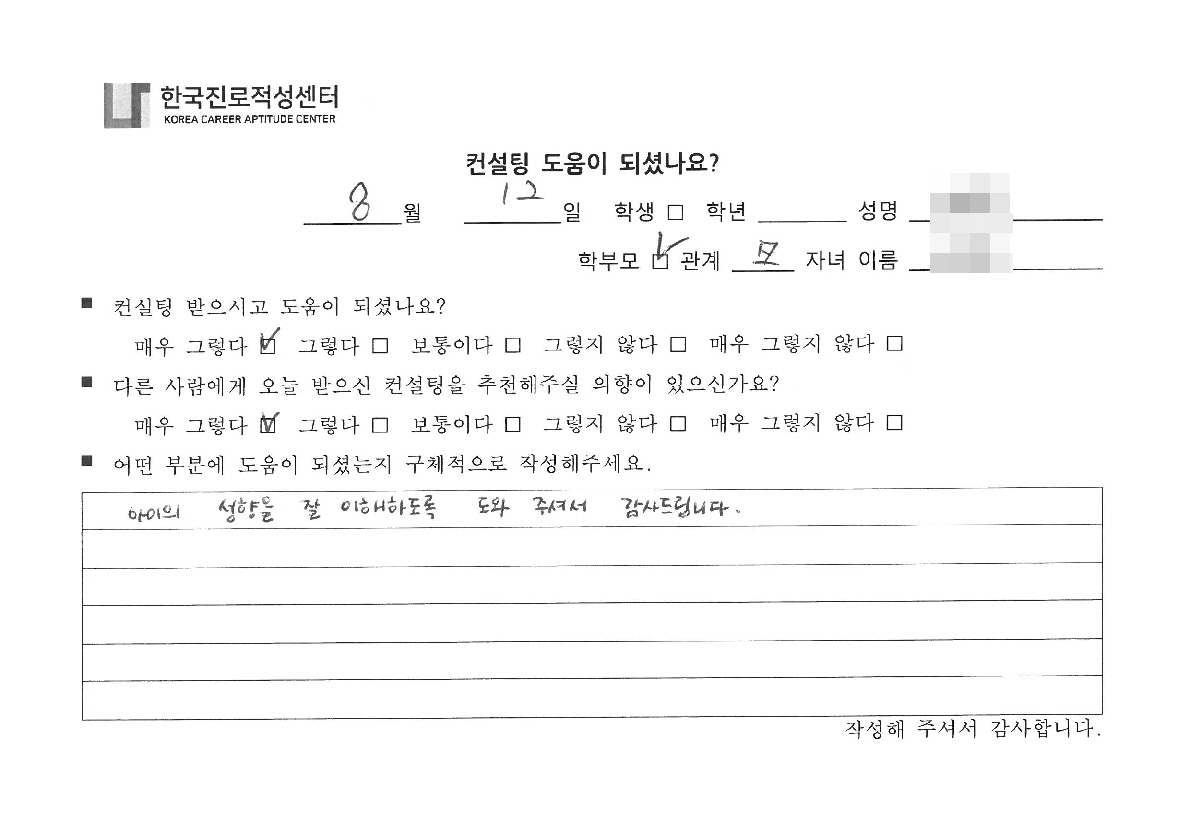 한국진로적성센터
KOREA CAREER APTITUDE CENTER
컨설팅 도움이 되셨나요?
8 월 12 일 학생 □ 학년 성명
학부모 ☑ 관계 모 자녀 이름
■ 컨실팅 받으시고 도움이 되셨나요?
매우 그렇다 ☑ 그렇다 □ 보통이다 □ 그렇지 않다 □ 매우 그렇지 않다 □
■ 다른 사람에게 오늘 받으신 컨설팅을 추천해주실 의향이 있으신가요?
매우 그렇다 ☑ 그렇다 □ 보통이다 □ 그렇지 않다 □ 매우 그렇지 않다 □
■ 어떤 부분에 도움이 되셨는지 구체적으로 작성해주세요.
아이의 성향을 잘 이해하도록 도와 주셔서 감사드립니다.
작성해 주셔서 감사합니다.